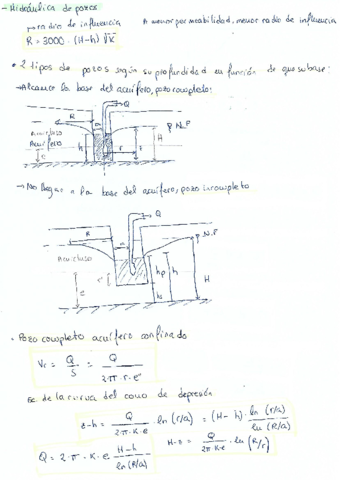 - Hidráulica de pozos
→ radio de influencia   A menor permeabilidad, menor radio de influencia
R = 3000 · (H-h) √K
• 2 tipos de pozos según su profundidad en función de que su base:
→ Alcance la base del acuífero, pozo completo:
Q
R
a
N.P
Acuicluso
Acuífero
h
r
z
H
e
→ No llega a la base del acuífero, pozo incompleto
Q
R
a
N.P
Acuicluso
hp
h
H
e
hs
• Pozo completo acuífero confinado
Vr = Q/S = Q/(2·π·r·e)
Ec. de la curva del cono de depresión
z-h = Q/(2·π·K·e) · ln (r/a) = (H-h) · ln (r/a)/ln (R/a)
Q = 2·π·K·e (H-h)/ln(R/a)   H-z = Q/(2π K·e) · ln (R/r)